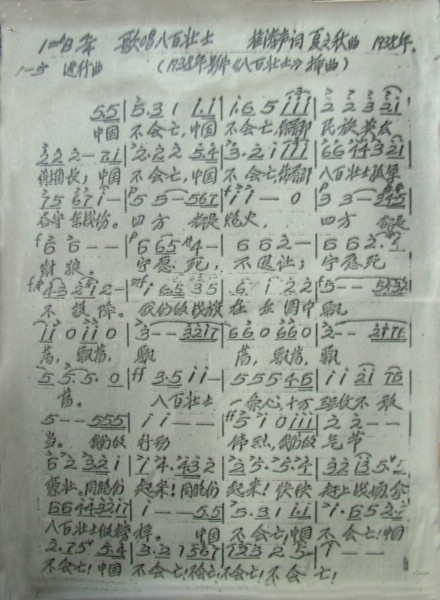 歌唱八百壮士 桂涛声词 夏之秋曲 1938年.
进行曲 (1938年影片《八百壮士》插曲)
5 5 | 5 . 3 1 1 . 1 | 1 . 6 5 1 1 1 | 2 2 3 2 1
中国 不会亡,中国 不会亡,你看那 民族英
2 2 2 - | 2 . 2 2 5 . 4 | 3 . 2 1 1 1 1 | 6 6 4 4 3 2 1
中国 不会亡,中国 不会亡,你看那 八百壮士孤军
7 5 6 7 1 - | 5 5 - 5 6 7 | 1 1 - 0 | 3 3 - 3 4 5
奋守东战场。 四方 都是 炮火, 四方 都是
6 6 - - | 6 6 5 4 - | 6 6 2 - | 6 6 2 .
豺狼。 宁愿死, 不退让; 宁愿死
4 3 2 1 2 - | 1 6 5 3 5 | 6 . 1 2 2 | 5 - - 5 4 3 2
不投降。 我们的战旗 在 重围中 飘
1 1 0 1 1 0 | 3 - - 3 2 1 7 | 6 6 0 6 6 0 | 2 - -
荡,飘荡, 飘 荡,飘荡,飘
5 5 . 5 . 0 | 3 . 5 1 1 - | 5 5 5 4 . 6 | 1 1 2 1 7 6
荡。 八百壮士 一条心,十万 强敌不敢
5 - - 5 5 5 | 1 1 - - | 5 1 0 1 1 1 | 2 2 - -
当。 我们的 行动 伟烈,我们的 气节
豪壮。同胞们 起来!同胞们 起来!快快 赶上战场,拿
6 6 4 4 3 2 1 7 | 1 - - 5 5 | 5 . 3 1 1 . 1 | 1 . 6 5
八百壮士做榜样。 中国 不会亡!中国 不会亡!中国
5 . 4 | 3 . 2 1 5 6 7 | 1 2 3 2 5 - | 1 - -
不会亡!不会亡!不会亡!不会亡! 不会 亡!